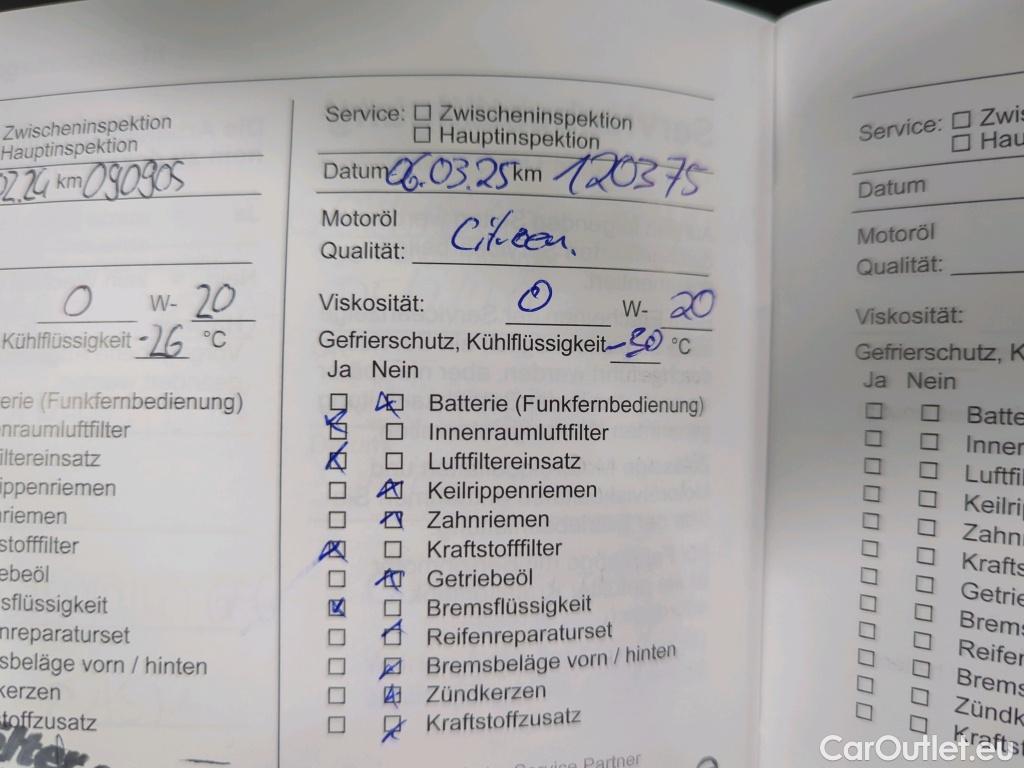 Zwischeninspektion
Hauptinspektion
02.24 km 090905
0 W- 20
Kühlflüssigkeit -26 °C
erie (Funkfernbedienung)
nraumluftfilter
ltereinsatz
ippenriemen
riemen
stofffilter
ebeöl
sflüssigkeit
nreparaturset
sbeläge vorn / hinten
kerzen
toffzusatz
Service: ☐ Zwischeninspektion
☐ Hauptinspektion
Datum 06.03.25 km 120375
Motoröl
Qualität: Citroen.
Viskosität: 0 W- 20
Gefrierschutz, Kühlflüssigkeit -30 °C
Ja Nein
Batterie (Funkfernbedienung)
Innenraumluftfilter
Luftfiltereinsatz
Keilrippenriemen
Zahnriemen
Kraftstofffilter
Getriebeöl
Bremsflüssigkeit
Reifenreparaturset
Bremsbeläge vorn / hinten
Zündkerzen
Kraftstoffzusatz
Service Partner
Service: ☐ Zwis
☐ Hau
Datum
Motoröl
Qualität:
Viskosität:
Gefrierschutz, K
Ja Nein
Batte
Innen
Luftfi
Keilrip
Zahn
Krafts
Getrie
Brems
Reifen
Brems
Zündk
Krafts
CarOutlet.eu